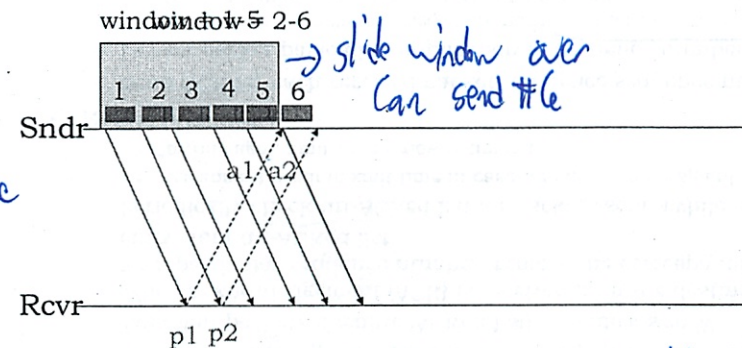 window = 1-5
window = 2-6
→ slide window over
Can send #6
1 2 3 4 5 6
Sndr
a1 a2
c
Rcvr
p1 p2